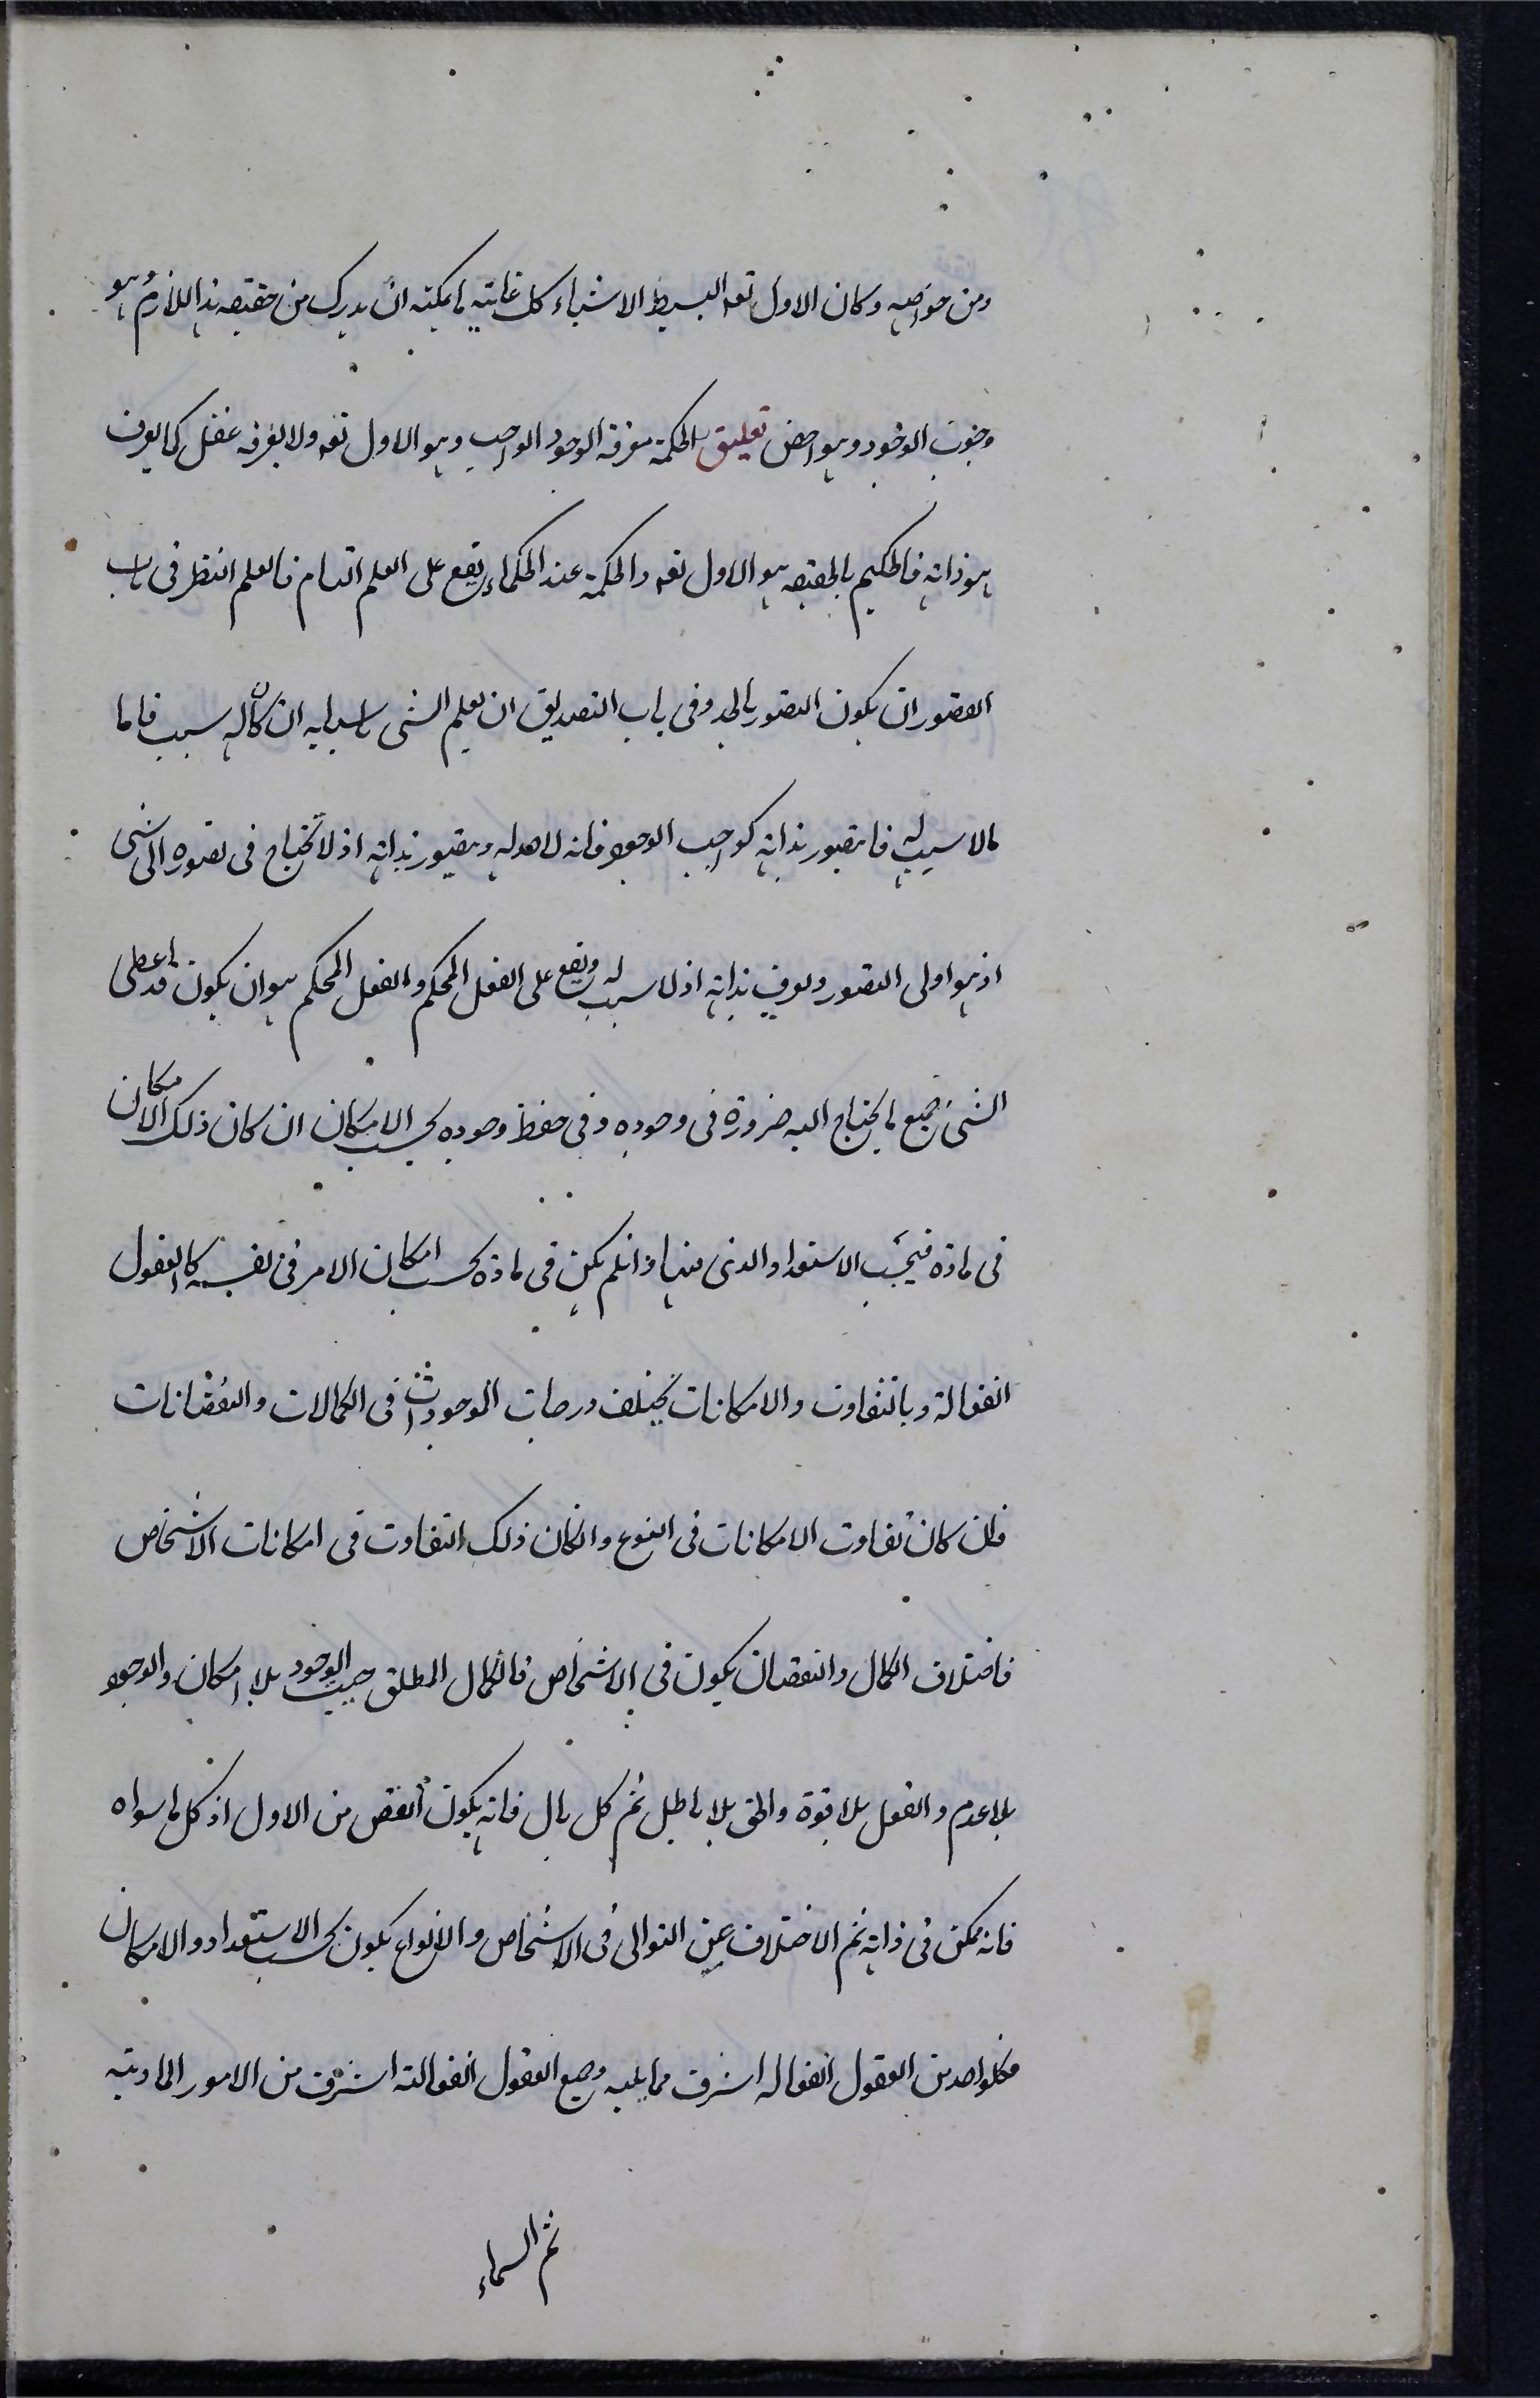 ومن خواصه وكان الاول تعه البسيط الاشياء كل غايته ما يمكنه ان يدرك من حقيقه هذا اللازم هو
وجوب الوجود وهو اخص تعليق الحكمة معرفة الوجود الواجب وهو الاول تعه ولا يعرفه عقل كما يعرف
هو ذاته فالحكيم بالحقيقه هو الاول تعه والحكمة عند الحكماء يقع على العلم التام فالعلم النظر فى باب
التصور ان يكون التصور بالحد وفى باب التصديق ان يعلم الشى باسبابه ان كان له سبب فاما
مالا سبب له فانه يتصور بذاته كواجب الوجود فانه لا حد له ويتصور بذاته اذ لا يحتاج فى تصوره الى شى
اذ هو اولى التصور ويعرف بذاته اذ لا سبب له ويقع على الفعل المحكم والفعل المحكم هو ان يكون قد اعطى
الشى جميع ما يحتاج اليه ضرورة فى وجوده وفى حفظ وجوده بحسب الامكان ان كان ذلك الامكان
فى مادة فبحسب الاستعداد الذى فيها وان لم يكن فى مادة بحسب امكان الامر فى نفسه كالعقول
الفعالة وبالتفاوت والامكانات يختلف درجات الموجودات فى الكمالات والنقصانات
فان كان تفاوت الامكانات فى النوع وان كان ذلك التفاوت فى امكانات الاشخاص
فاختلاف الكمال والنقصان يكون فى الاشخاص فالكمال المطلق حيث الوجود بلا امكان والوجود
بلا عدم والفعل بلا قوة والحق بلا باطل ثم كل تال فانه يكون انقص من الاول اذ كل ما سواه
فانه ممكن فى ذاته ثم الاختلاف عين التوالى فى الاشخاص والانواع يكون بحسب الاستعداد والامكان
فكل واحد من العقول الفعاله اشرف مما يليه وجميع العقول الفعالته اشرف من الامور المادية
ثم السماء